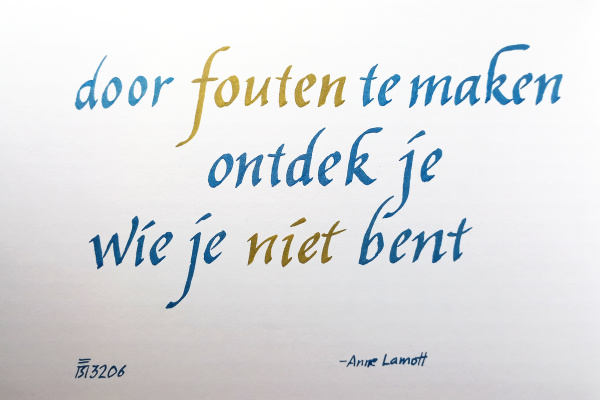 door fouten te maken
ontdek je
wie je niet bent
-Anne Lamott
3206